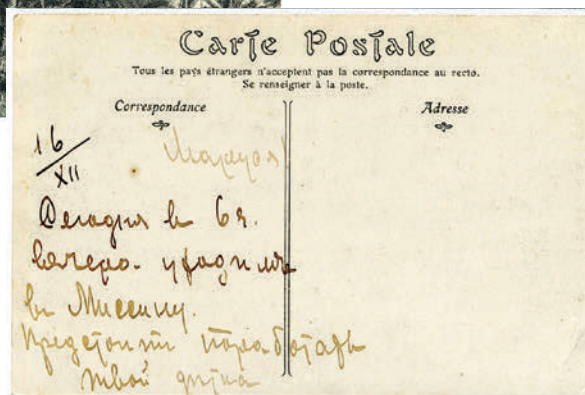 Carte Postale
Tous les pays étrangers n'acceptent pas la correspondance au recto.
Se renseigner à la poste.
Correspondance
Adresse
16
XII
Сегодня в 6 ч.
вечера
в Мессину.
Предстоит поработать
твой